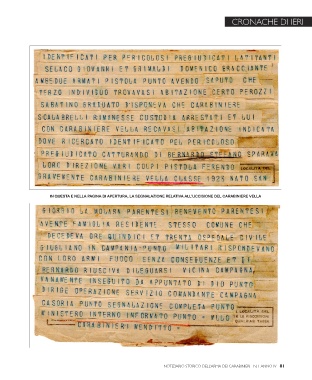 CRONACHE DI IERI
IDENTIFICATI PER PERICOLOSI PREGIUDICATI LATITANTI
SELACO GIOVANNI ET GRIMALDI DOMENICO BRACCIANTE
AMBEDUE ARMATI PISTOLA PUNTO AVENDO SAPUTO CHE
TERZO INDIVIDUO TROVAVASI ABITAZIONE CERTO PEROZZI
SABATINO GRADUATO DISPONEVA CHE CARABINIERE
SCALABRELLI ROMANESSE CUSTODIA ARRESTATI ET LUI
CON CARABINIERE VELLA RECAVASI ABITAZIONE INDICATA
DOVE RICERCATO IDENTIFICATO PEL PERICOLOSO
PREGIUDICATO CATTURANDO DI BERNARDO STEFANO SPARAVA
LORO DIREZIONE VARI COLPI PISTOLA FERENDO
GRAVEMENTE CARABINIERE VELLA CLASSE 1925 NATO SAN
IN QUESTA E NELLA PAGINA DI APERTURA, LA SEGNALAZIONE RELATIVA ALL'UCCISIONE DEL CARABINIERE VELLA
GIORGIO LA MOLARA PARENTESI BENEVENTO PARENTESI
AVENTE FAMIGLIA RESIDENTE STESSO COMUNE CHE
DECEDEVA ORE QUINDICI ET TRENTA OSPEDALE CIVILE
GIUGLIANO IN CAMPANIA PUNTO MILITARI RISPONDEVANO
CON LORO ARMI FUOCO SENZA CONSEGUENZE ET DI
BERNARDO RIUSCIVA DILEGUARSI VICINA CAMPAGNA,
VANAMENTE INSEGUITO DA APPUNTATO DI PIO PUNTO
DIRIGE OPERAZIONE SERVIZIO COMANDANTE CAMPAGNA
CASORIA PUNTO SEGNALAZIONE COMPLETA PUNTO
MINISTERO INTERNO INFORMATO PUNTO
CARABINIERI
NOTIZIARIO STORICO DELL'ARMA DEI CARABINIERI - N.1 ANNO IV 81